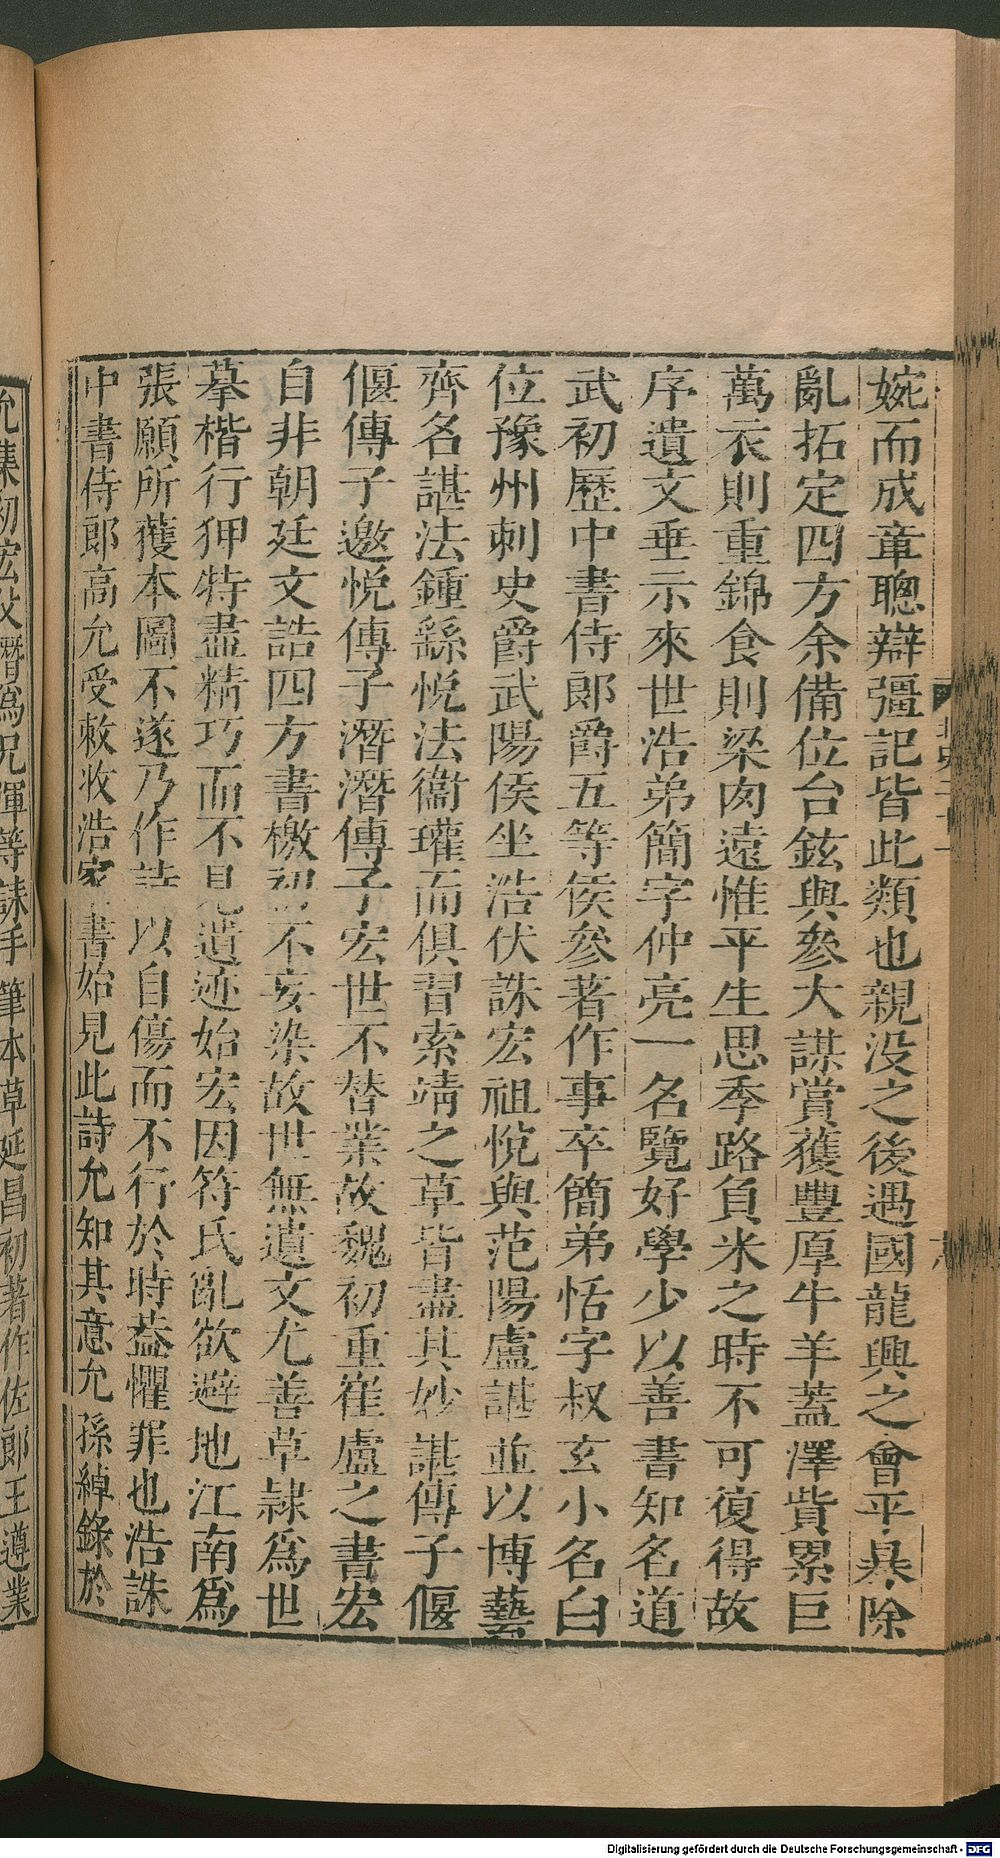 婉而成章聰辯彊記皆此類也親没之後遇國龍興之會平暴除
亂拓定四方余備位台鉉與參大謀賞獲豐厚牛羊蓋澤貲累巨
萬衣則重錦食則粱肉遠惟平生思季路負米之時不可復得故
序遺文垂示來世浩弟簡字仲亮一名覽好學少以善書知名道
武初歷中書侍郎爵五等侯參著作事卒簡弟恬字叔玄小名白
位豫州刺史爵武陽侯坐浩伏誅宏祖悅與范陽盧諶並以博藝
齊名諶法鍾繇悅法衞瓘而俱習索靖之草皆盡其妙諶傳子偃
偃傳子邈悅傳子潛潛傳子宏世不替業故魏初重崔盧之書宏
自非朝廷文誥四方書檄初不妄染故世無遺文尤善草隷爲世
摹楷行狎特盡精巧而不見遺迹始宏因符氏亂欲避地江南爲
張願所獲本圖不遂乃作詩以自傷而不行於時葢懼罪也浩誅
中書侍郎高允受敕收浩家書始見此詩允知其意允孫綽錄於
允集初宏父潛爲兄渾等誄手筆本草延昌初著作佐郎王遵業
Digitalisierung gefördert durch die Deutsche Forschungsgemeinschaft - DFG